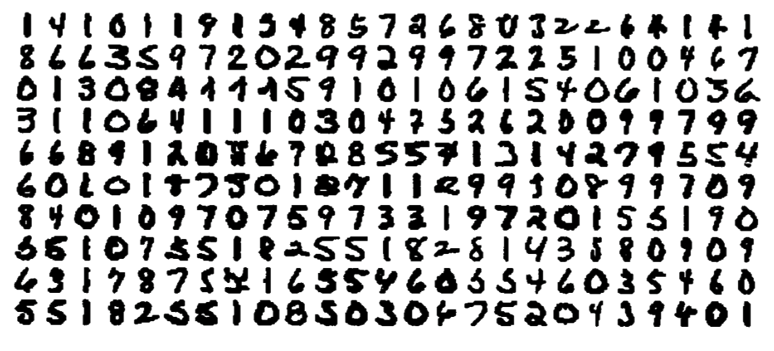 1 4 1 0 1 1 9 1 5 4 8 5 7 2 6 8 0 3 2 2 6 4 1 4 1
8 6 6 3 5 9 7 2 0 2 9 9 2 9 9 7 2 2 5 1 0 0 4 6 7
0 1 3 0 8 4 1 1 1 5 9 1 0 1 0 6 1 5 4 0 6 1 0 3 6
3 1 1 0 6 4 1 1 1 0 3 0 4 7 5 2 6 2 0 0 9 9 7 9 9
6 6 8 9 1 2 0 8 6 7 0 8 5 5 7 1 3 1 4 2 7 9 5 5 4
6 0 1 0 1 8 7 3 0 1 8 7 1 1 2 9 9 1 0 8 9 9 7 0 9
8 4 0 1 0 9 7 0 7 5 9 7 3 3 1 9 7 2 0 1 5 5 1 9 0
5 5 1 0 7 5 5 1 8 2 5 5 1 8 2 8 1 4 3 5 8 0 9 0 9
6 3 1 7 8 7 5 4 1 6 5 5 4 6 0 5 5 4 6 0 3 5 4 6 0
5 5 1 8 2 5 5 1 0 8 5 0 3 0 4 7 5 2 0 4 3 9 4 0 1